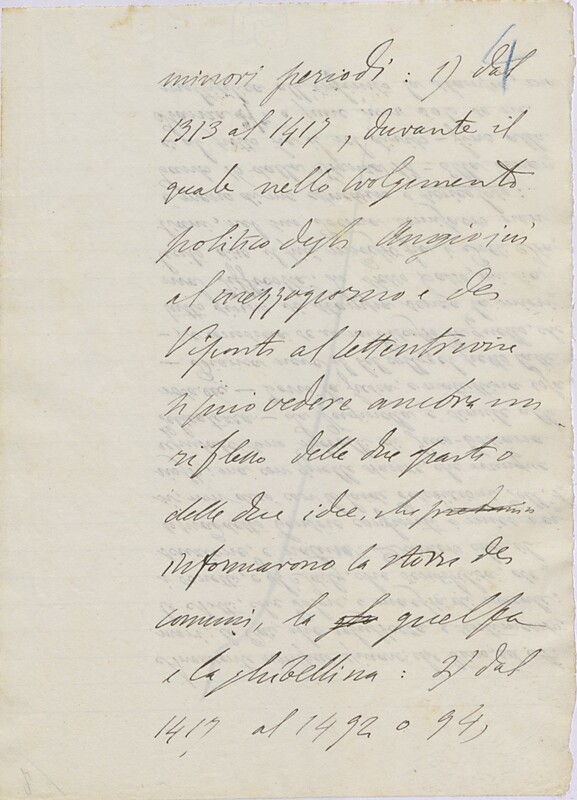 4
minori periodi : 1) dal
1313 al 1417, durante il
quale nello svolgimento
politico degli Angioini
al mezzogiorno e dei
Visconti al settentrione
si può vedere ancora un
riflesso delle due parti o
delle due idee, che
informarono la storia dei
comuni, la guelfa
e la ghibellina : 2) dal
1417 al 1492 o 94,